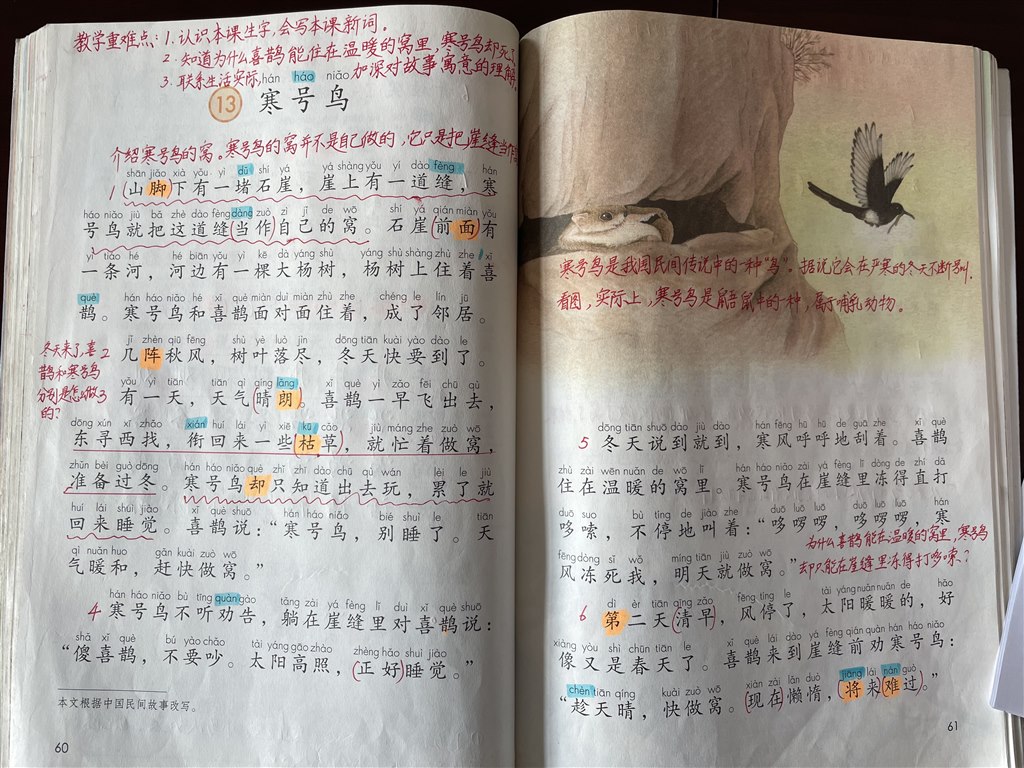 教学重难点：1. 认识本课生字，会写本课新词。
2. 知道为什么喜鹊能住在温暖的窝里，寒号鸟却死了
3. 联系生活实际，加深对故事寓意的理解
hán háo niǎo
13 寒号鸟
介绍寒号鸟的窝。寒号鸟的窝并不是自己做的，它只是把崖缝当作
shān jiǎo xià yǒu yì dǔ shí yá yá shàng yǒu yí dào fèng hán
1 山脚下有一堵石崖，崖上有一道缝，寒
háo niǎo jiù bǎ zhè dào fèng dàng zuò zì jǐ de wō shí yá qián miàn yǒu
号鸟就把这道缝当作自己的窝。石崖前面有
yì tiáo hé hé biān yǒu yì kē dà yáng shù yáng shù shàng zhù zhe xǐ
一条河，河边有一棵大杨树，杨树上住着喜
què hán háo niǎo hé xǐ què miàn duì miàn zhù zhe chéng le lín jū
鹊。寒号鸟和喜鹊面对面住着，成了邻居。
冬天来了，喜
鹊和寒号鸟
分别是怎么做
的？
jǐ zhèn qiū fēng shù yè luò jìn dōng tiān kuài yào dào le
2 几阵秋风，树叶落尽，冬天快要到了。
yǒu yì tiān tiān qì qíng lǎng xǐ què yì zǎo fēi chū qù
3 有一天，天气晴朗。喜鹊一早飞出去，
dōng xún xī zhǎo xián huí lái yì xiē kū cǎo jiù máng zhe zuò wō
东寻西找，衔回来一些枯草，就忙着做窝，
zhǔn bèi guò dōng hán háo niǎo què zhǐ zhī dào chū qù wán lèi le jiù
准备过冬。寒号鸟却只知道出去玩，累了就
huí lái shuì jiào xǐ què shuō hán háo niǎo bié shuì le tiān
回来睡觉。喜鹊说：“寒号鸟，别睡了。天
qì nuǎn huo gǎn kuài zuò wō
气暖和，赶快做窝。”
hán háo niǎo bù tīng quàn gào tǎng zài yá fèng lǐ duì xǐ què shuō
4 寒号鸟不听劝告，躺在崖缝里对喜鹊说：
shǎ xǐ què bú yào chǎo tài yáng gāo zhào zhèng hǎo shuì jiào
“傻喜鹊，不要吵。太阳高照，正好睡觉。”
本文根据中国民间故事改写。
60
寒号鸟是我国民间传说中的一种“鸟”。据说它会在严寒的冬天不断号叫.
看图，实际上，寒号鸟是鼯鼠中的一种，属于哺乳动物。
dōng tiān shuō dào jiù dào hán fēng hū hū de guā zhe xǐ què
5 冬天说到就到，寒风呼呼地刮着。喜鹊
zhù zài wēn nuǎn de wō lǐ hán háo niǎo zài yá fèng lǐ dòng de zhí dǎ
住在温暖的窝里。寒号鸟在崖缝里冻得直打
duō suo bù tíng de jiào zhe duō luō luō duō luō luō hán
哆嗦，不停地叫着：“哆啰啰，哆啰啰，寒
为什么喜鹊能在温暖的窝里，寒号鸟
fēng dòng sǐ wǒ míng tiān jiù zuò wō
风冻死我，明天就做窝。”
却只能在崖缝里冻得打哆嗦？
dì èr tiān qīng zǎo fēng tíng le tài yáng nuǎn nuǎn de hǎo
6 第二天清早，风停了，太阳暖暖的，好
xiàng yòu shì chūn tiān le xǐ què lái dào yá fèng qián quàn hán háo niǎo
像又是春天了。喜鹊来到崖缝前劝寒号鸟：
chèn tiān qíng kuài zuò wō xiàn zài lǎn duò jiāng lái nán guò
“趁天晴，快做窝。现在懒惰，将来难过。”
61